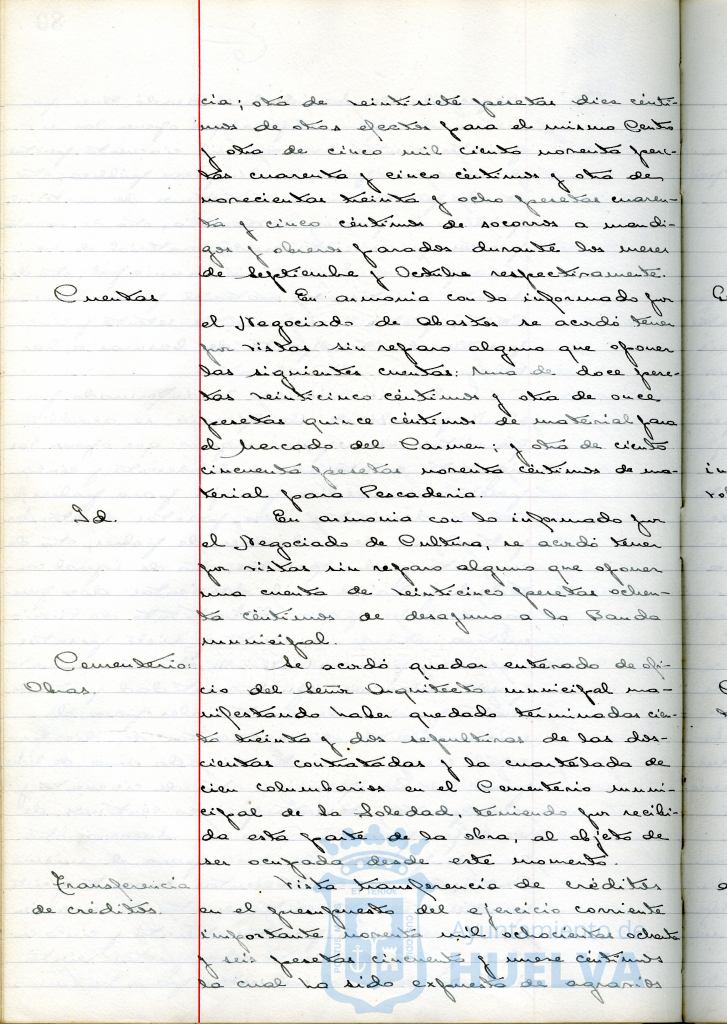 cia; otra de veintisiete pesetas diez cénti-
mos de otros efectos para el mismo Centro
y otra de cinco mil ciento noventa pese-
tas cuarenta y cinco céntimos y otra de
novecientas treinta y ocho pesetas cuaren-
ta y cinco céntimos de socorros a mendi-
gos y obreros parados durante los meses
de Septiembre y Octubre respectivamente.
Cuentas En armonia con lo informado por
el Negociado de Abastos se acordó tener
por vistas sin reparo alguno que oponer
las siguientes cuentas: una de doce pese-
tas veinticinco céntimos y otra de once
pesetas quince céntimos de material para
el Mercado del Carmen; y otra de ciento
cincuenta pesetas noventa céntimos de ma-
terial para Pescaderia.
Id. En armonia con lo informado por
el Negociado de Cultura, se acordó tener
por vistas sin reparo alguno que oponer
una cuenta de veinticinco pesetas ochen-
ta céntimos de desayuno a la Banda
municipal.
Cementerio: Se acordó quedar enterado de ofi-
Obras. cio del Señor Arquitecto municipal ma-
nifestando haber quedado terminadas cien-
to treinta y dos sepulturas de las dos-
cientas contratadas y la cuartelada de
cien columbarios en el Cementerio muni-
cipal de la Soledad, teniendo por recibi-
da esta parte de la obra, al objeto de
ser ocupada desde este momento.
Transferencia Vista transferencia de créditos
de créditos. en el presupuesto del ejercicio corriente
importante noventa mil ochocientas ochenta
y seis pesetas cincuenta y nueve céntimos
la cual ha sido expuesta de agravios
Ayuntamiento de
HUELVA